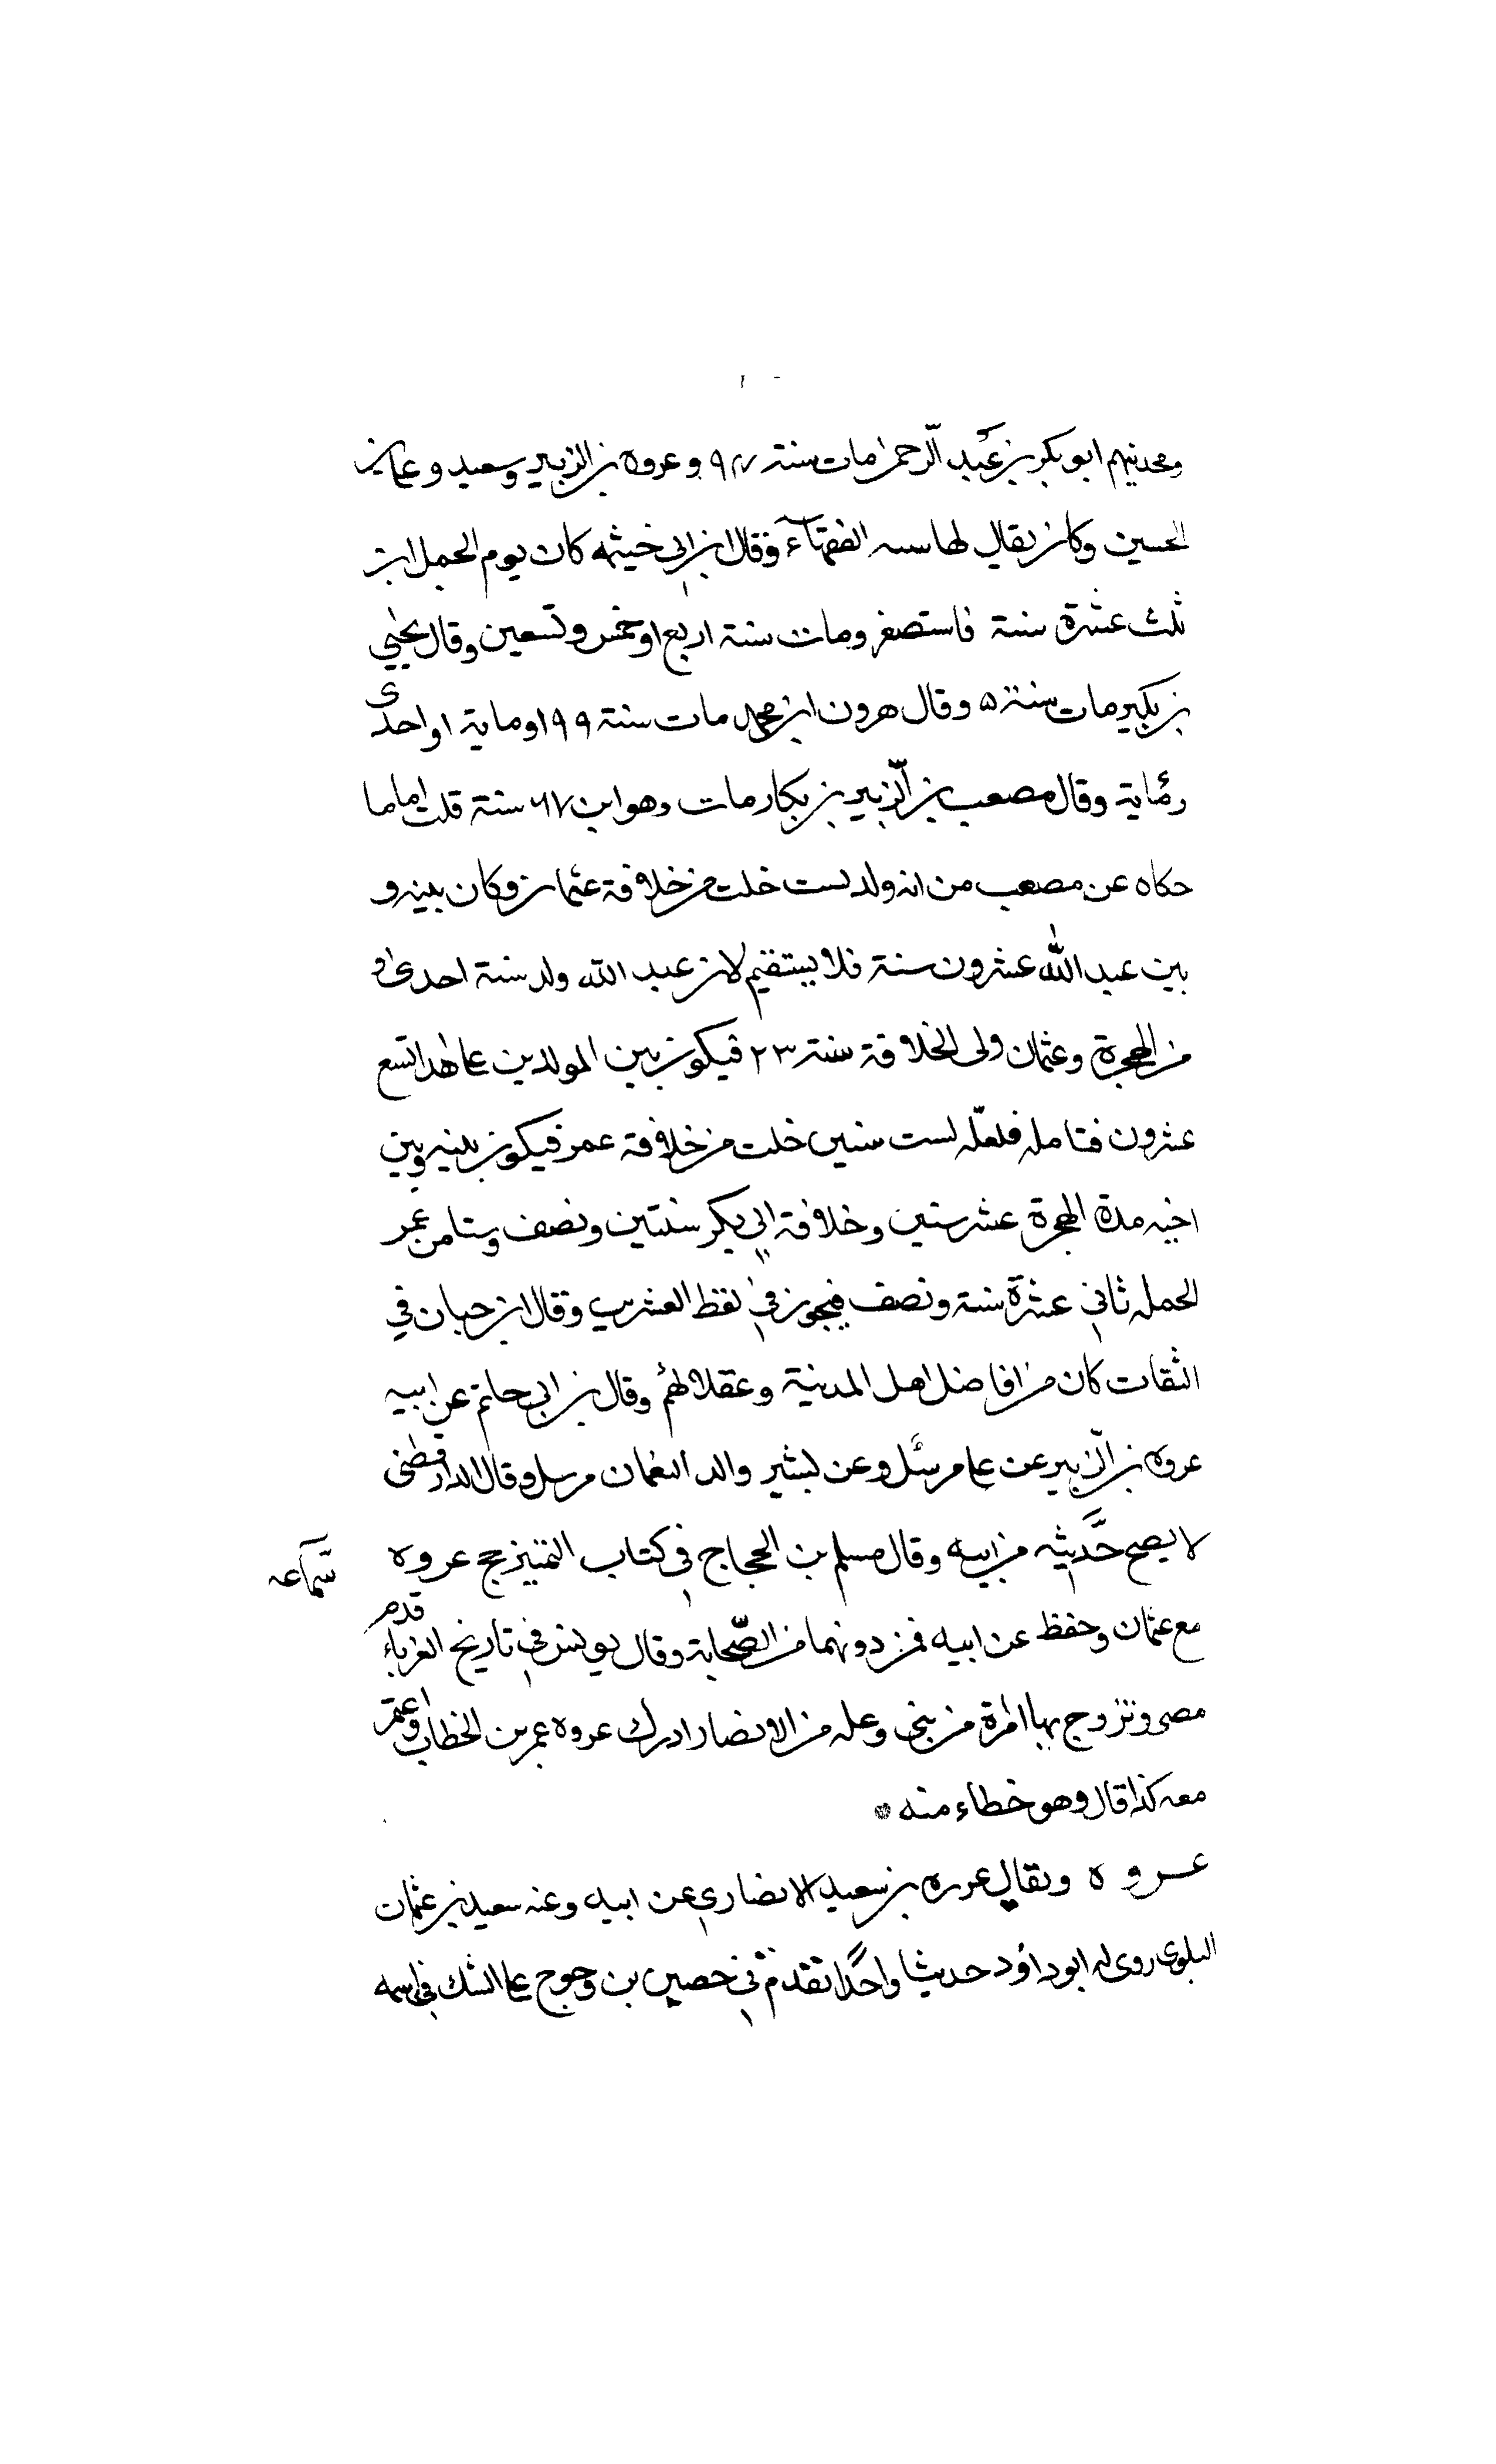 ومحدثيهم ابو بكر بن عبد الرحمن مات سنة ٩٤ و عروه بن الزبير وسعيد و على بن
الحسين وكان يقال لها سنه الفقهاء وقال ابن ابي خيثمه كان يوم الجمل ابن
ثلث عشرة سنة فاستصغر ومات سنة اربع او خمس وتسعين وقال يحيى
بن بكير مات سنة ٥ وقال هرون ابن محمد مات سنة ٩٩ او ماية او احدى
ومماية وقال مصعب بن الزبير بن بكار مات وهو ابن ٦٧ سنة قلت اما ما
حكاه عن مصعب من انه ولد لست خلت من خلافة عثمان وكان بينه و
بين عبد الله عشرون سنة فلا يستقيم لان عبد الله ولد سنة احدى
من الهجرة وعثمان ولى الخلافة سنة ٢٣ فيكون بين المولدين على هذا تسع
عشرون فتامله فلعله لست سنين خلت من خلافة عمر فيكون بينه وبين
اخيه مدة الهجرة عشر سنين وخلافة ابي بكر سنتين ونصف وستا من عمر
الجمله ثاني عشرة سنة ونصف فيجوز في لفظ العشرين وقال ابن حبان في
الثقات كان من افاضل اهل المدينة وعقلائهم وقال بن ابي حاتم عن ابيه
عروه بن الزبير عن على مرسل وعن بشير والد النعمان مرسل وقال الدارقطني
لا يصح حديثه من ابيه وقال مسلم بن الحجاج في كتاب التمييز حج عروه
سماعه
مع عثمان وحفظ عن ابيه فمن دونهما من الصحابة وقال يونس في تاريخ الغرباء قدم
مصر وتزوج بها امراة من بني وعله من الانصار ادرك عروه عمر بن الخطاب واعتمر
معه كذا قال وهو خطاء منه
عروه ويقال عزره بن سعيد الانصاري عن ابيه وعنه سعيد بن عثمان
البلوى روى له ابو داؤد حديثا واحدا تقدم في حصين بن وحوح على الشك في اسمه